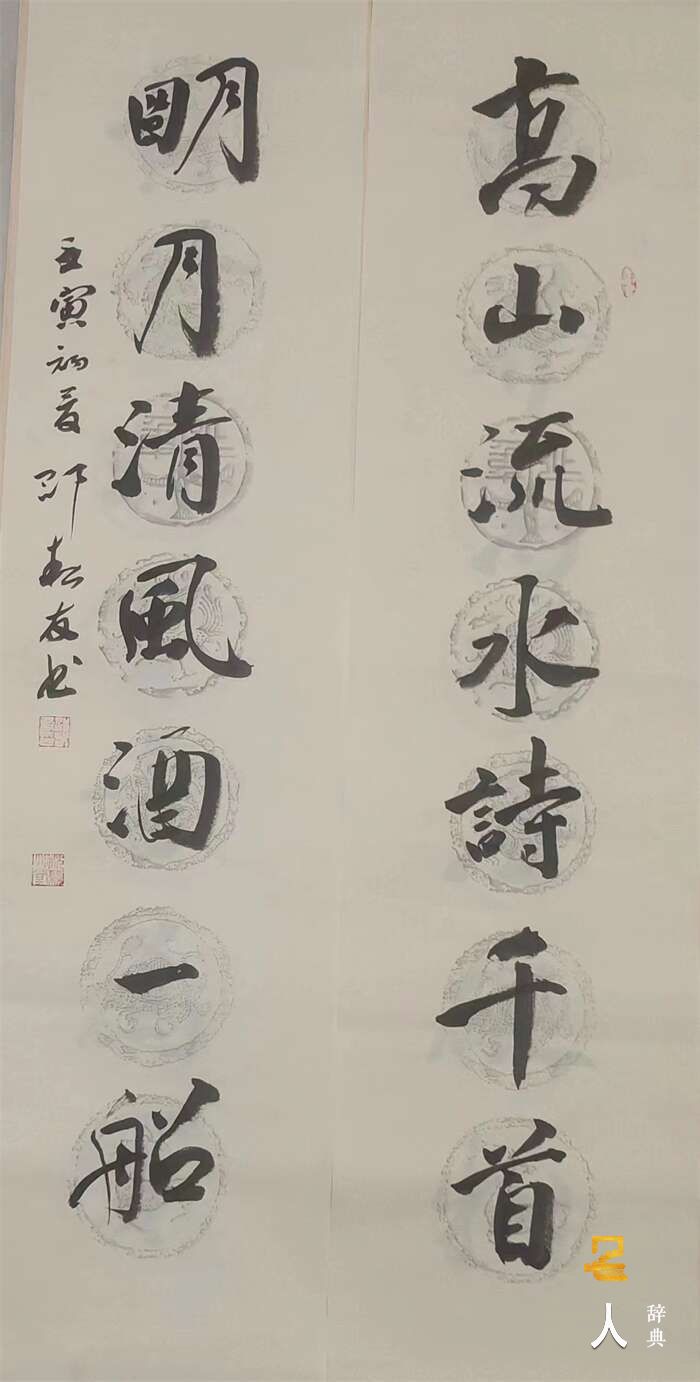 高山流水詩千首
明月清風酒一船
壬寅初夏 邵友书
名人辞典